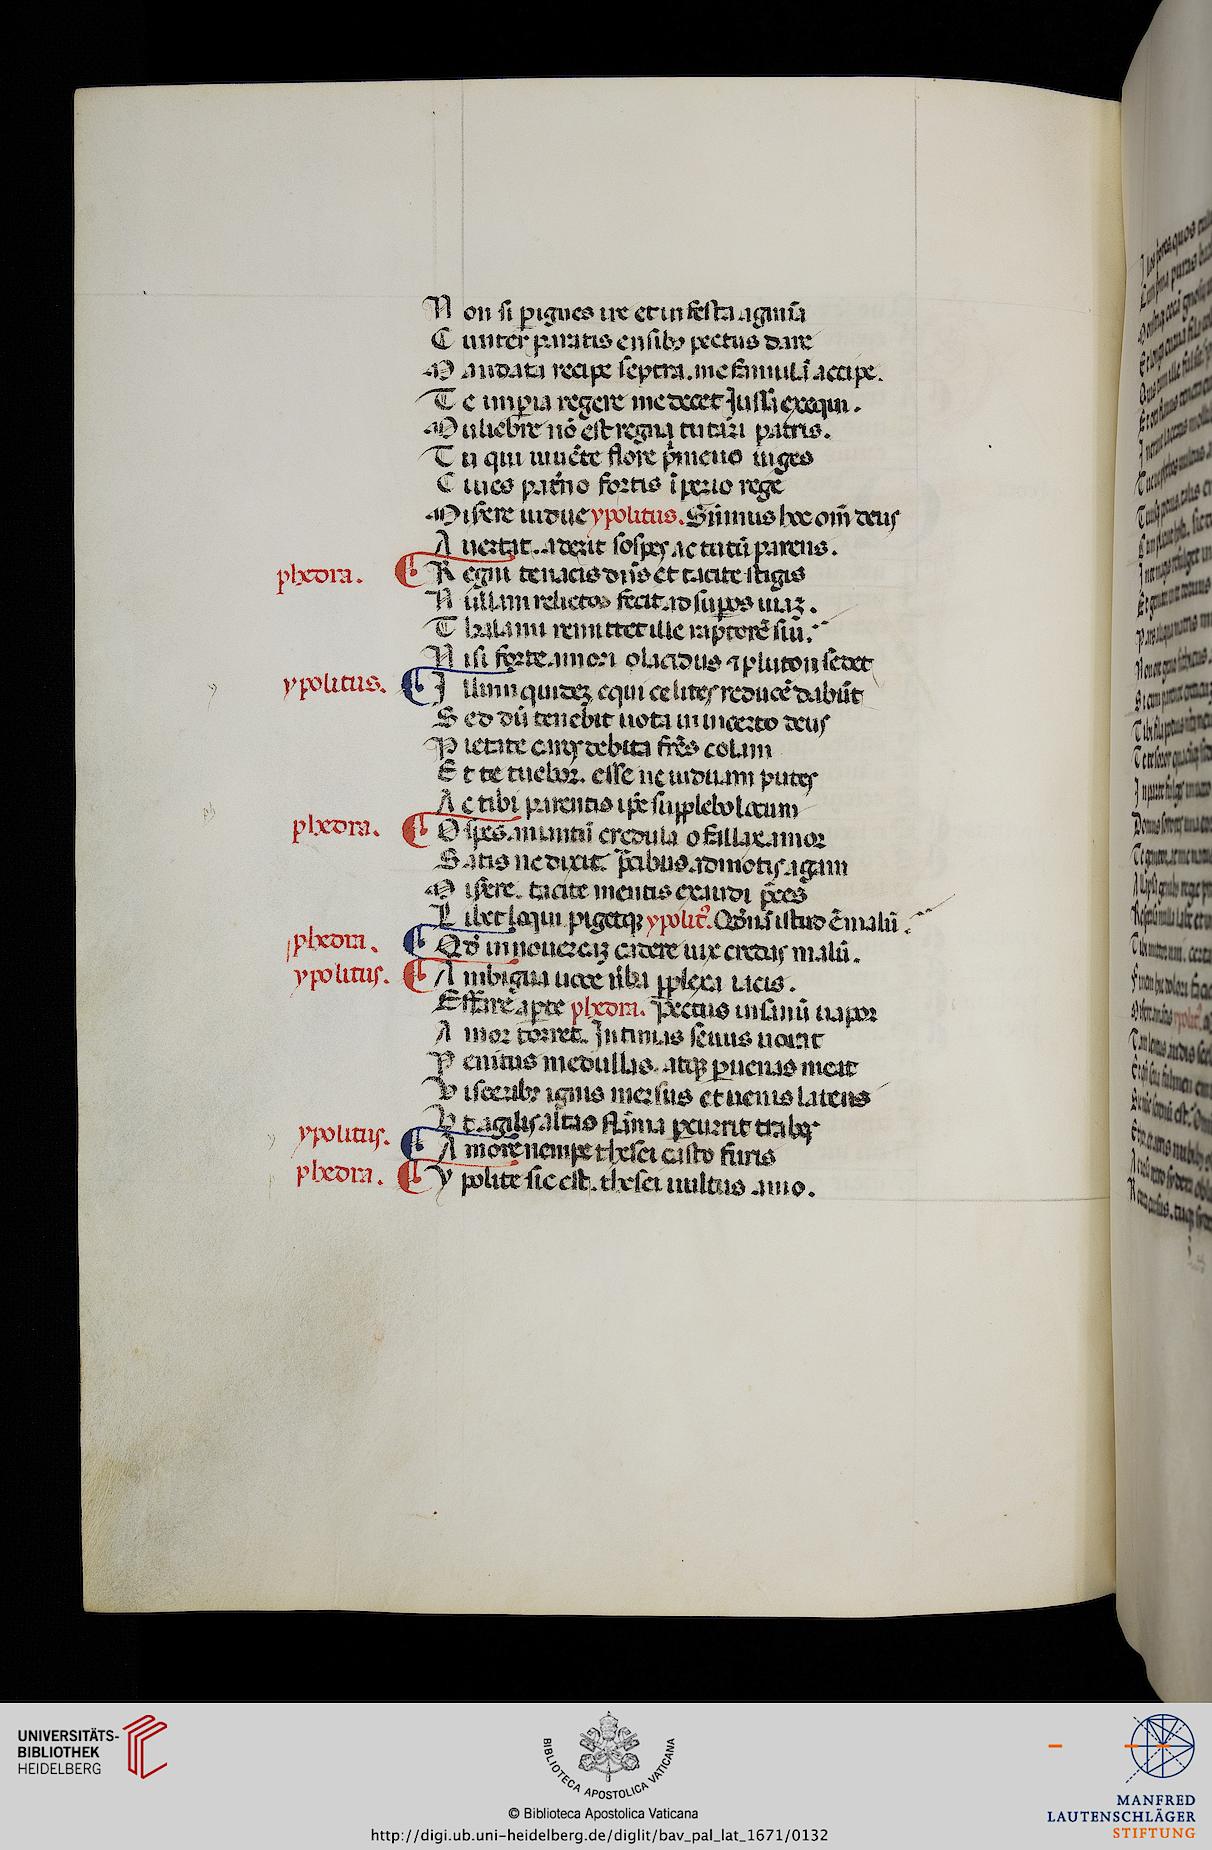 Non si ꝑ ignes ire et infesta agmīa
Cuncter paratis ensibȝ pectus dare
Mandata recipe septra. me famulā accipe.
Te imꝑia regere me decet Jussa exequi.
Muliebre nō est regna tutari patris.
Tu qui iuuēte flore pͥmeuo uiges
Ciues patͥno fortis īperio rege
Miserere uidue ypolitus. Summus hoc omē deus
Auertat. aderit sospes ac tutū parens.
phedra. Regni tenacis dn̄s et tacite stigis
Nullam relictos fecit ad suꝑos uiaȝ.
Thalami remittet ille raptorē sui.
Nisi forte amori placidus ⁊ pluton sedet
ypolitus. Illum quideȝ equi celites reducē dabūt
Sed dū tenebit uota in incerto deus
Pietate caros debita fr̄es colam
Et te tuebor. esse ne uiduam putes
Ac tibi parentis ip̄e supplebo locum
phedra. O spes amantū credula o fallax amor
Satis ne dixit. p̄cibus admotis agam
Miserere. tacite mentis exaudi p̄ces
Libet loqui pigetqȝ ypolitꝰ. Qd̄nā istud ē malū.
phedra. Qd̄ in nouercaȝ cadere uix credas malū.
ypolitus. Ambigua uoce uerba ꝑplexa iacis.
Effare aꝑte phedra. Pectus insanū uapor
Amor torret. Intimas seuus uorat
Penitus medullas. atqȝ ꝑ uenas meat
Visceribȝ ignis mersus et uenis latens
Vt agilis altas flāma ꝑcurrit trabes
ypolitus. Amore nempe thesei casto furis
phedra. Ypolite sic est. thesei uultus amo.
UNIVERSITÄTS-
BIBLIOTHEK
HEIDELBERG
BIBLIOTECA APOSTOLICA VATICANA
© Biblioteca Apostolica Vaticana
http://digi.ub.uni-heidelberg.de/diglit/bav_pal_lat_1671/0132
MANFRED
LAUTENSCHLÄGER
STIFTUNG